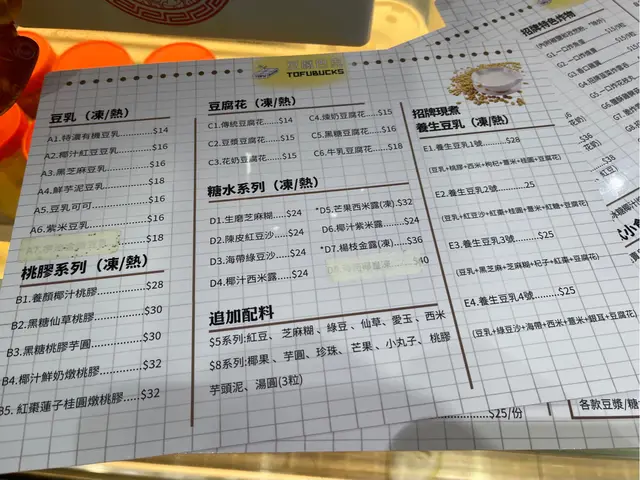 TOFUBUCKS
豆乳（凍/熱）
A1.特濃有機豆乳 $14
A2.椰汁紅豆豆乳 $16
A3.黑芝麻豆乳 $16
A4.鮮芋泥豆乳 $18
A5.豆乳可可 $16
A6.紫米豆乳 $16
$18
桃膠系列（凍/熱）
B1.養顏椰汁桃膠 $28
B2.黑糖仙草桃膠 $30
B3.黑糖桃膠芋圓 $30
B4.椰汁鮮奶燉桃膠 $32
B5.紅棗蓮子桂圓燉桃膠 $32
豆腐花（凍/熱）
C1.傳統豆腐花 $14
C2.豆漿豆腐花 $15
C3.花奶豆腐花 $15
C4.煉奶豆腐花 $15
C5.黑糖豆腐花 $16
C6.牛乳豆腐花 $18
糖水系列（凍/熱）
D1.生磨芝麻糊 $24
D2.陳皮紅豆沙 $24
D3.海帶綠豆沙 $24
D4.椰汁西米露 $24
*D5.芒果西米露(凍) $32
D6.椰汁紫米露 $24
*D7.楊枝金露(凍) $36
$40
追加配料
$5系列:紅豆、芝麻糊、綠豆、仙草、愛玉、西米
$8系列:椰果、芋圓、珍珠、芒果、小丸子、桃膠
芋頭泥、湯圓(3粒)
招牌現煮
養生豆乳（凍/熱）
E1.養生豆乳1號 $28
(豆乳+桃膠+西米+枸杞+薏米+桂圓+豆腐花)
E2.養生豆乳2號 25
(豆乳+紅豆沙+紅棗+桂圓+薏米+紅糖+豆腐花)
E3.養生豆乳3號 $25
(豆乳+黑芝麻+芝麻糊+杞子+紅棗+豆腐花)
E4.養生豆乳4號 $25
(豆乳+綠豆沙+海帶+西米+薏米+銀耳+豆腐花)
招牌特色炸物
$25/份
各款豆漿/糖